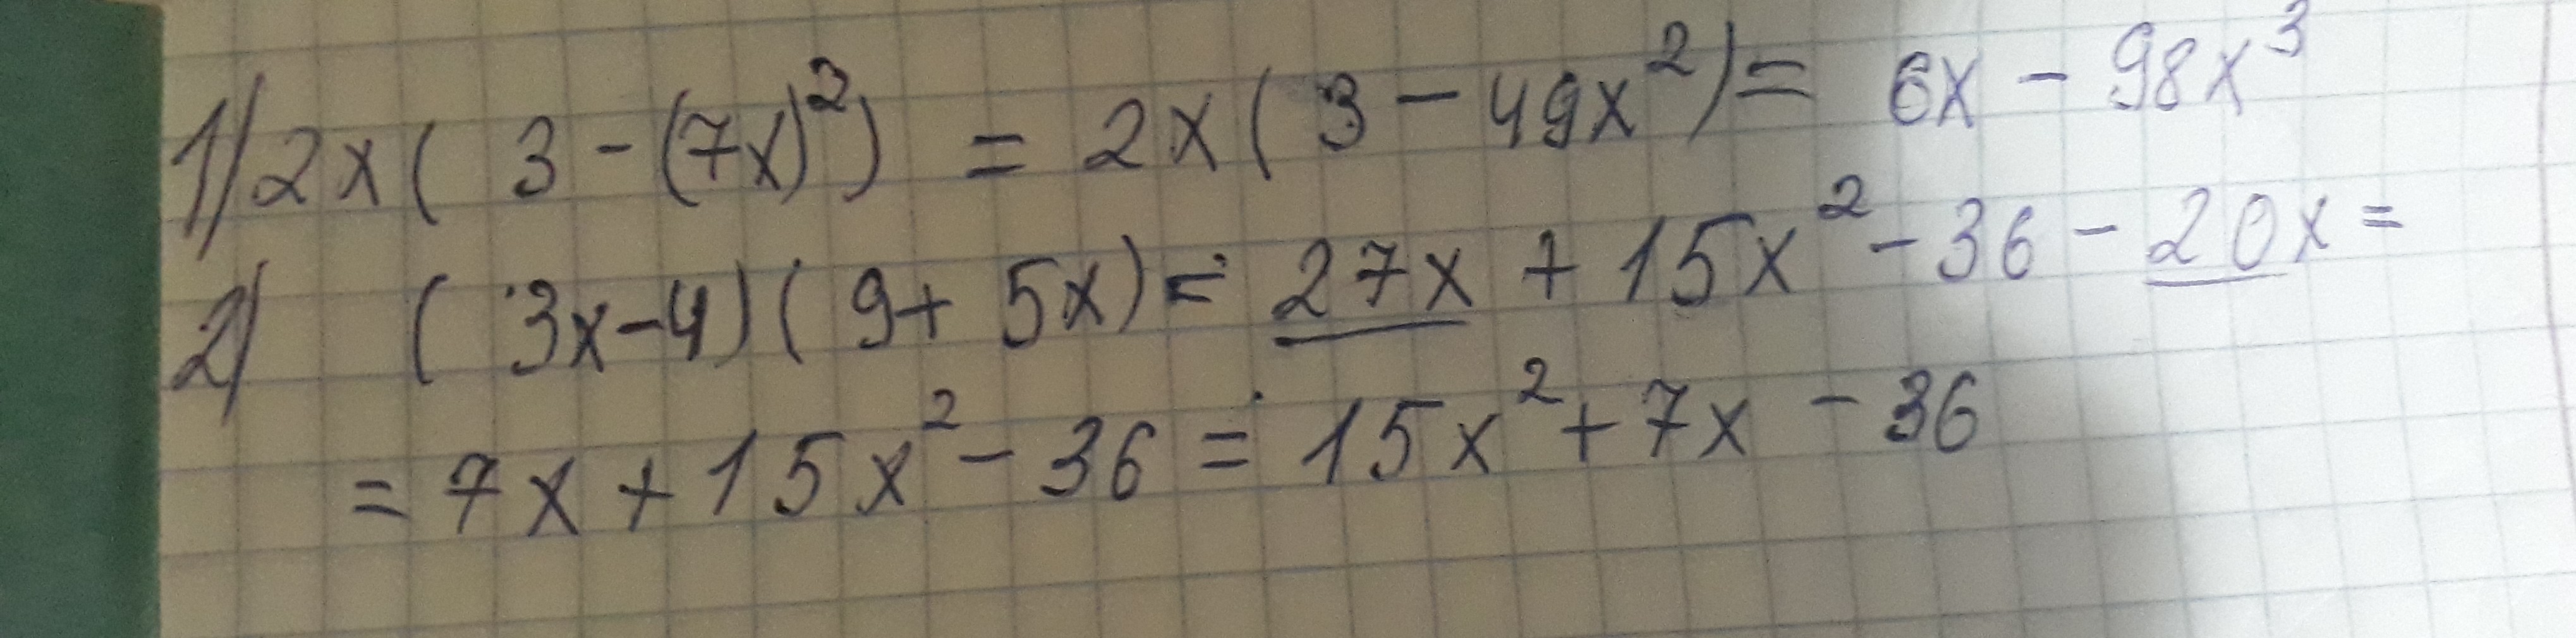 1) 2x( 3 - (7x)²) = 2x( 3 - 49x²) = 6x - 98x³
2) ( 3x-4)( 9+ 5x) = 27x + 15x² - 36 - 20x =
= 7x + 15x² - 36 = 15x² + 7x - 36